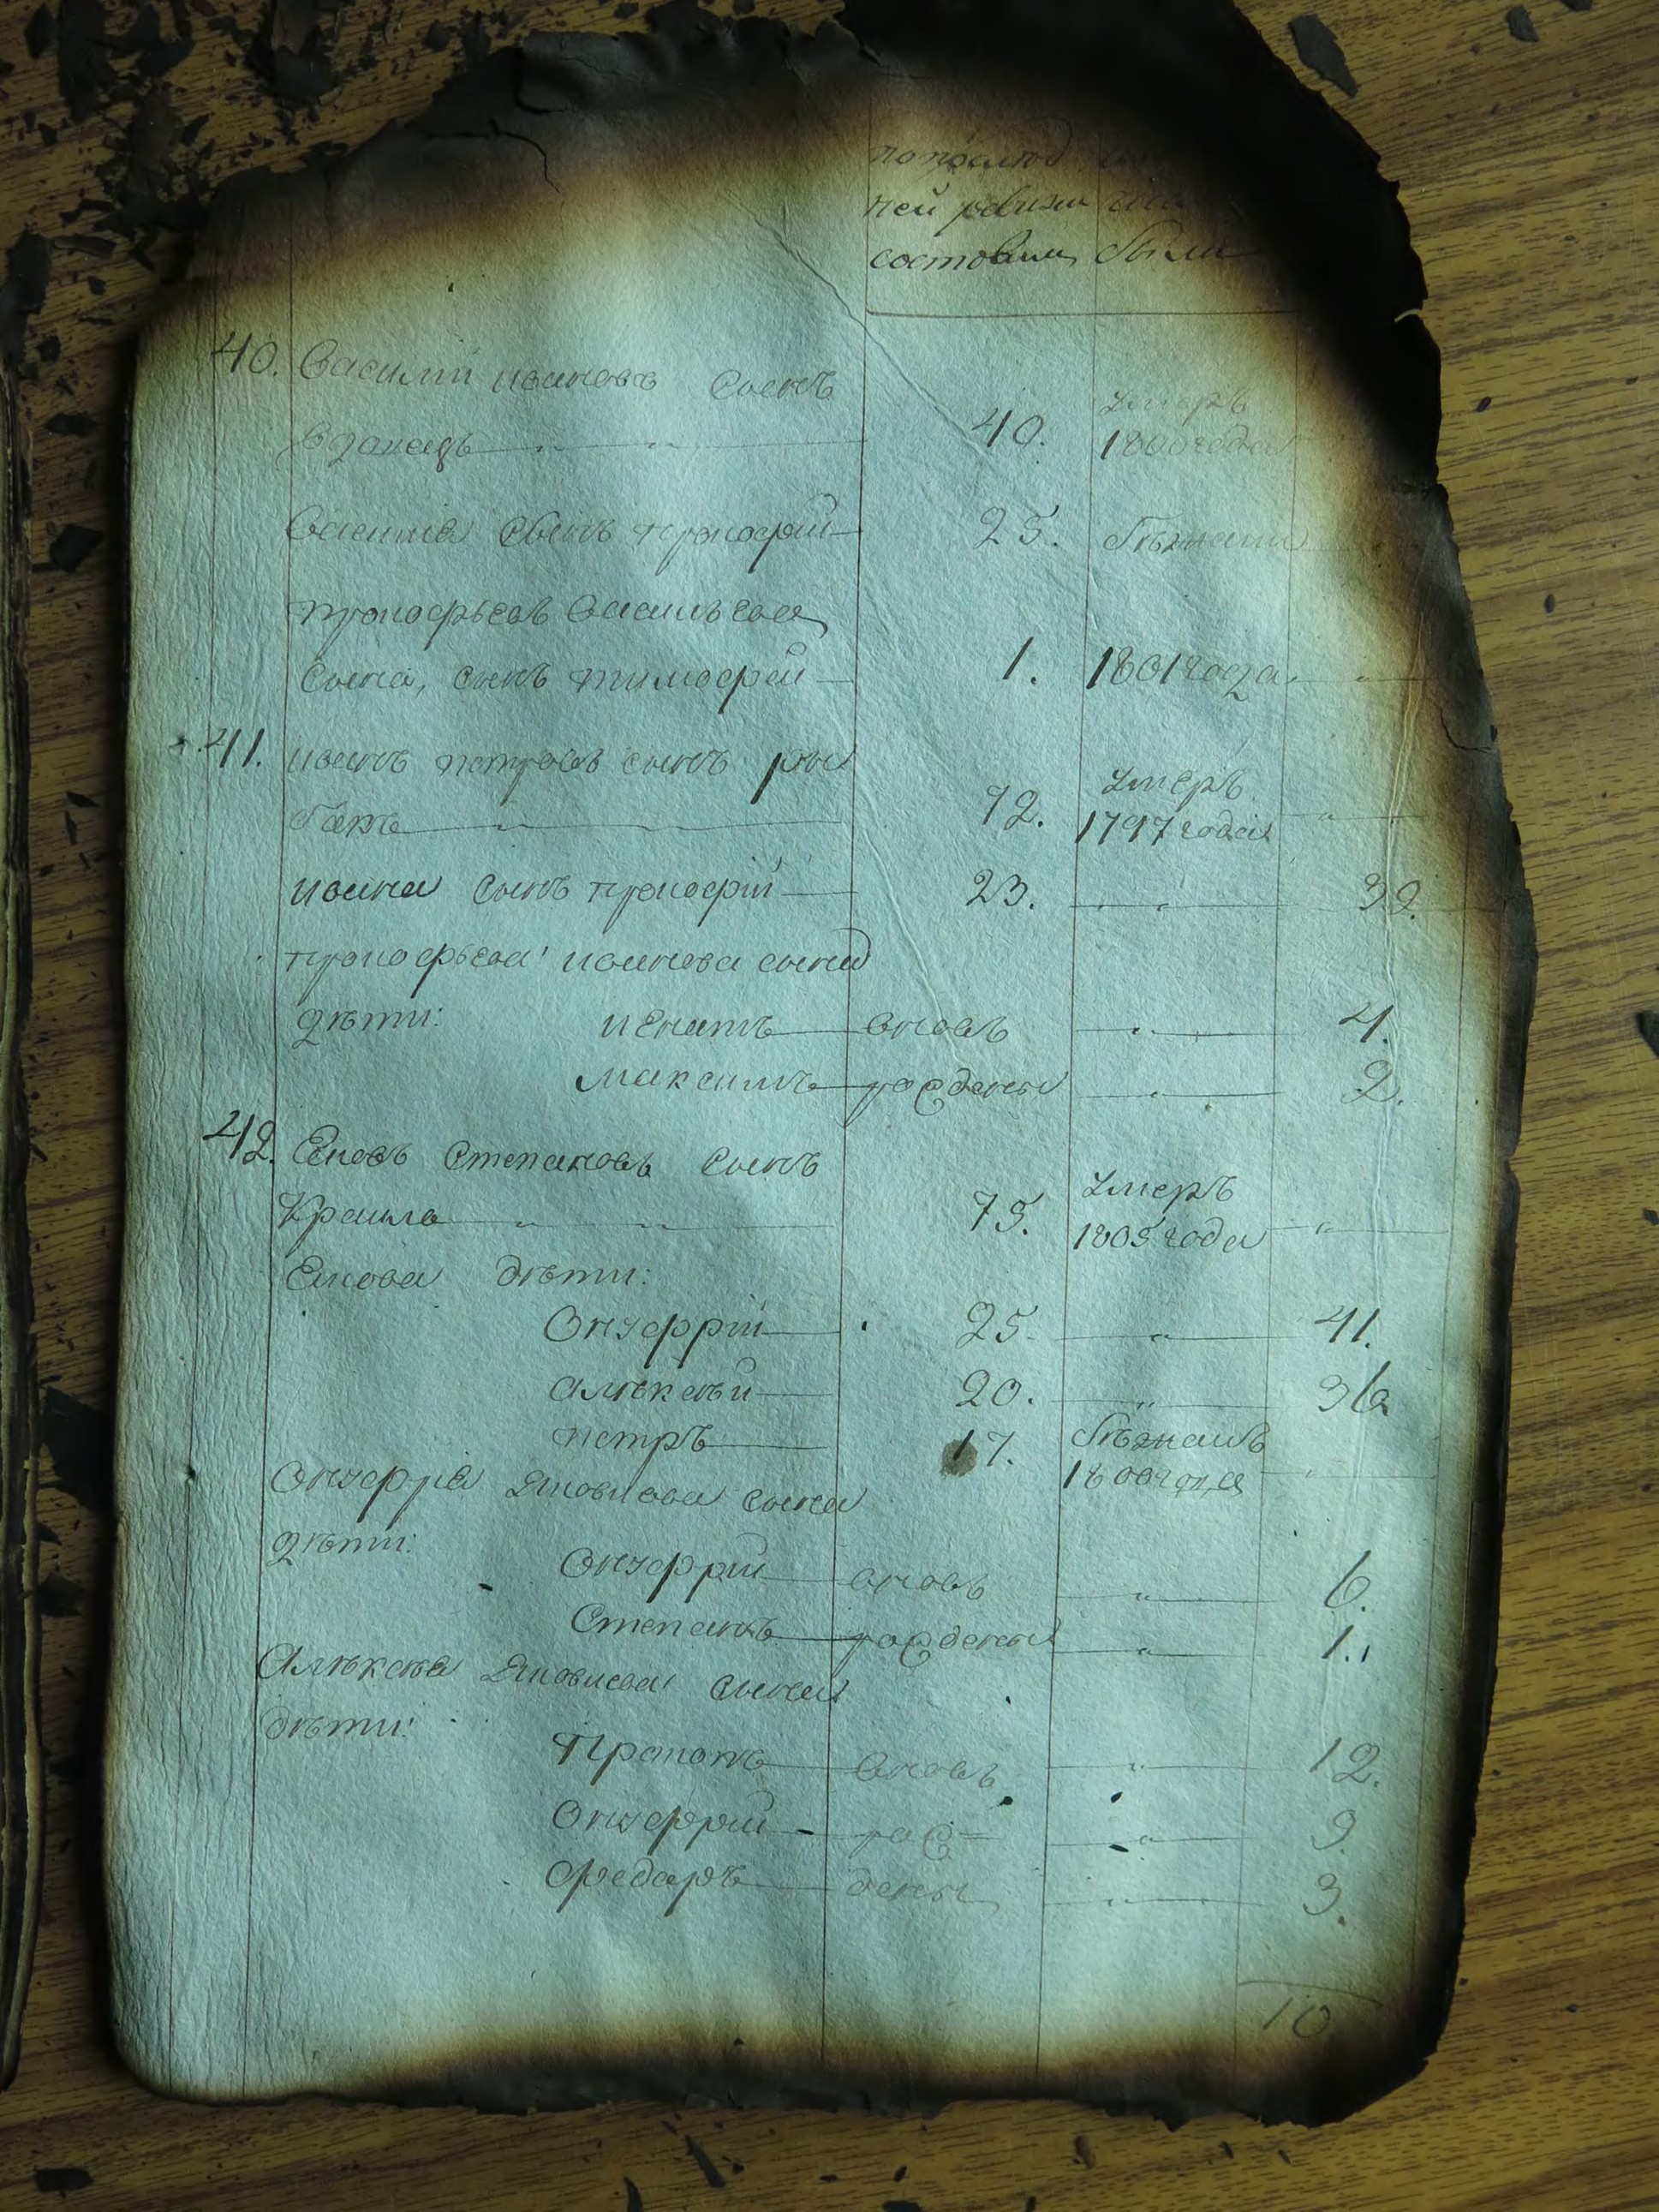 по послѣд
ней ревизіи
состояли были
40. Василій ивановъ сынъ
вдовецъ 40. умеръ 1800 года
василія сынъ прокофій 25. бѣжали
прокофьева васильева
сына, сынъ тимофей 1. 1801 года
41. иванъ петровъ сынъ ры
бакъ 72. умеръ 1797 года
ивана сынъ прокофій 23. 39.
прокофьева иванова сына
дѣти: игнатъ вновь 4.
максимъ рождены 2.
42. Яковъ Степановъ сынъ
Крапива 75. умеръ 1805 года
Якова дѣти:
Онуфрій 25. 41.
алѣксѣй 20. 36.
петръ 17. бѣжалъ 1800 года
Онуфрія Яковлева сына
дѣти: Онуфрій вновь 6.
Степанъ рождены 1.
Алѣксѣя Яковлева сына
дѣти: Прокопъ вновь 12.
Онуфрій рож= 9.
Федоръ дены 3.
10